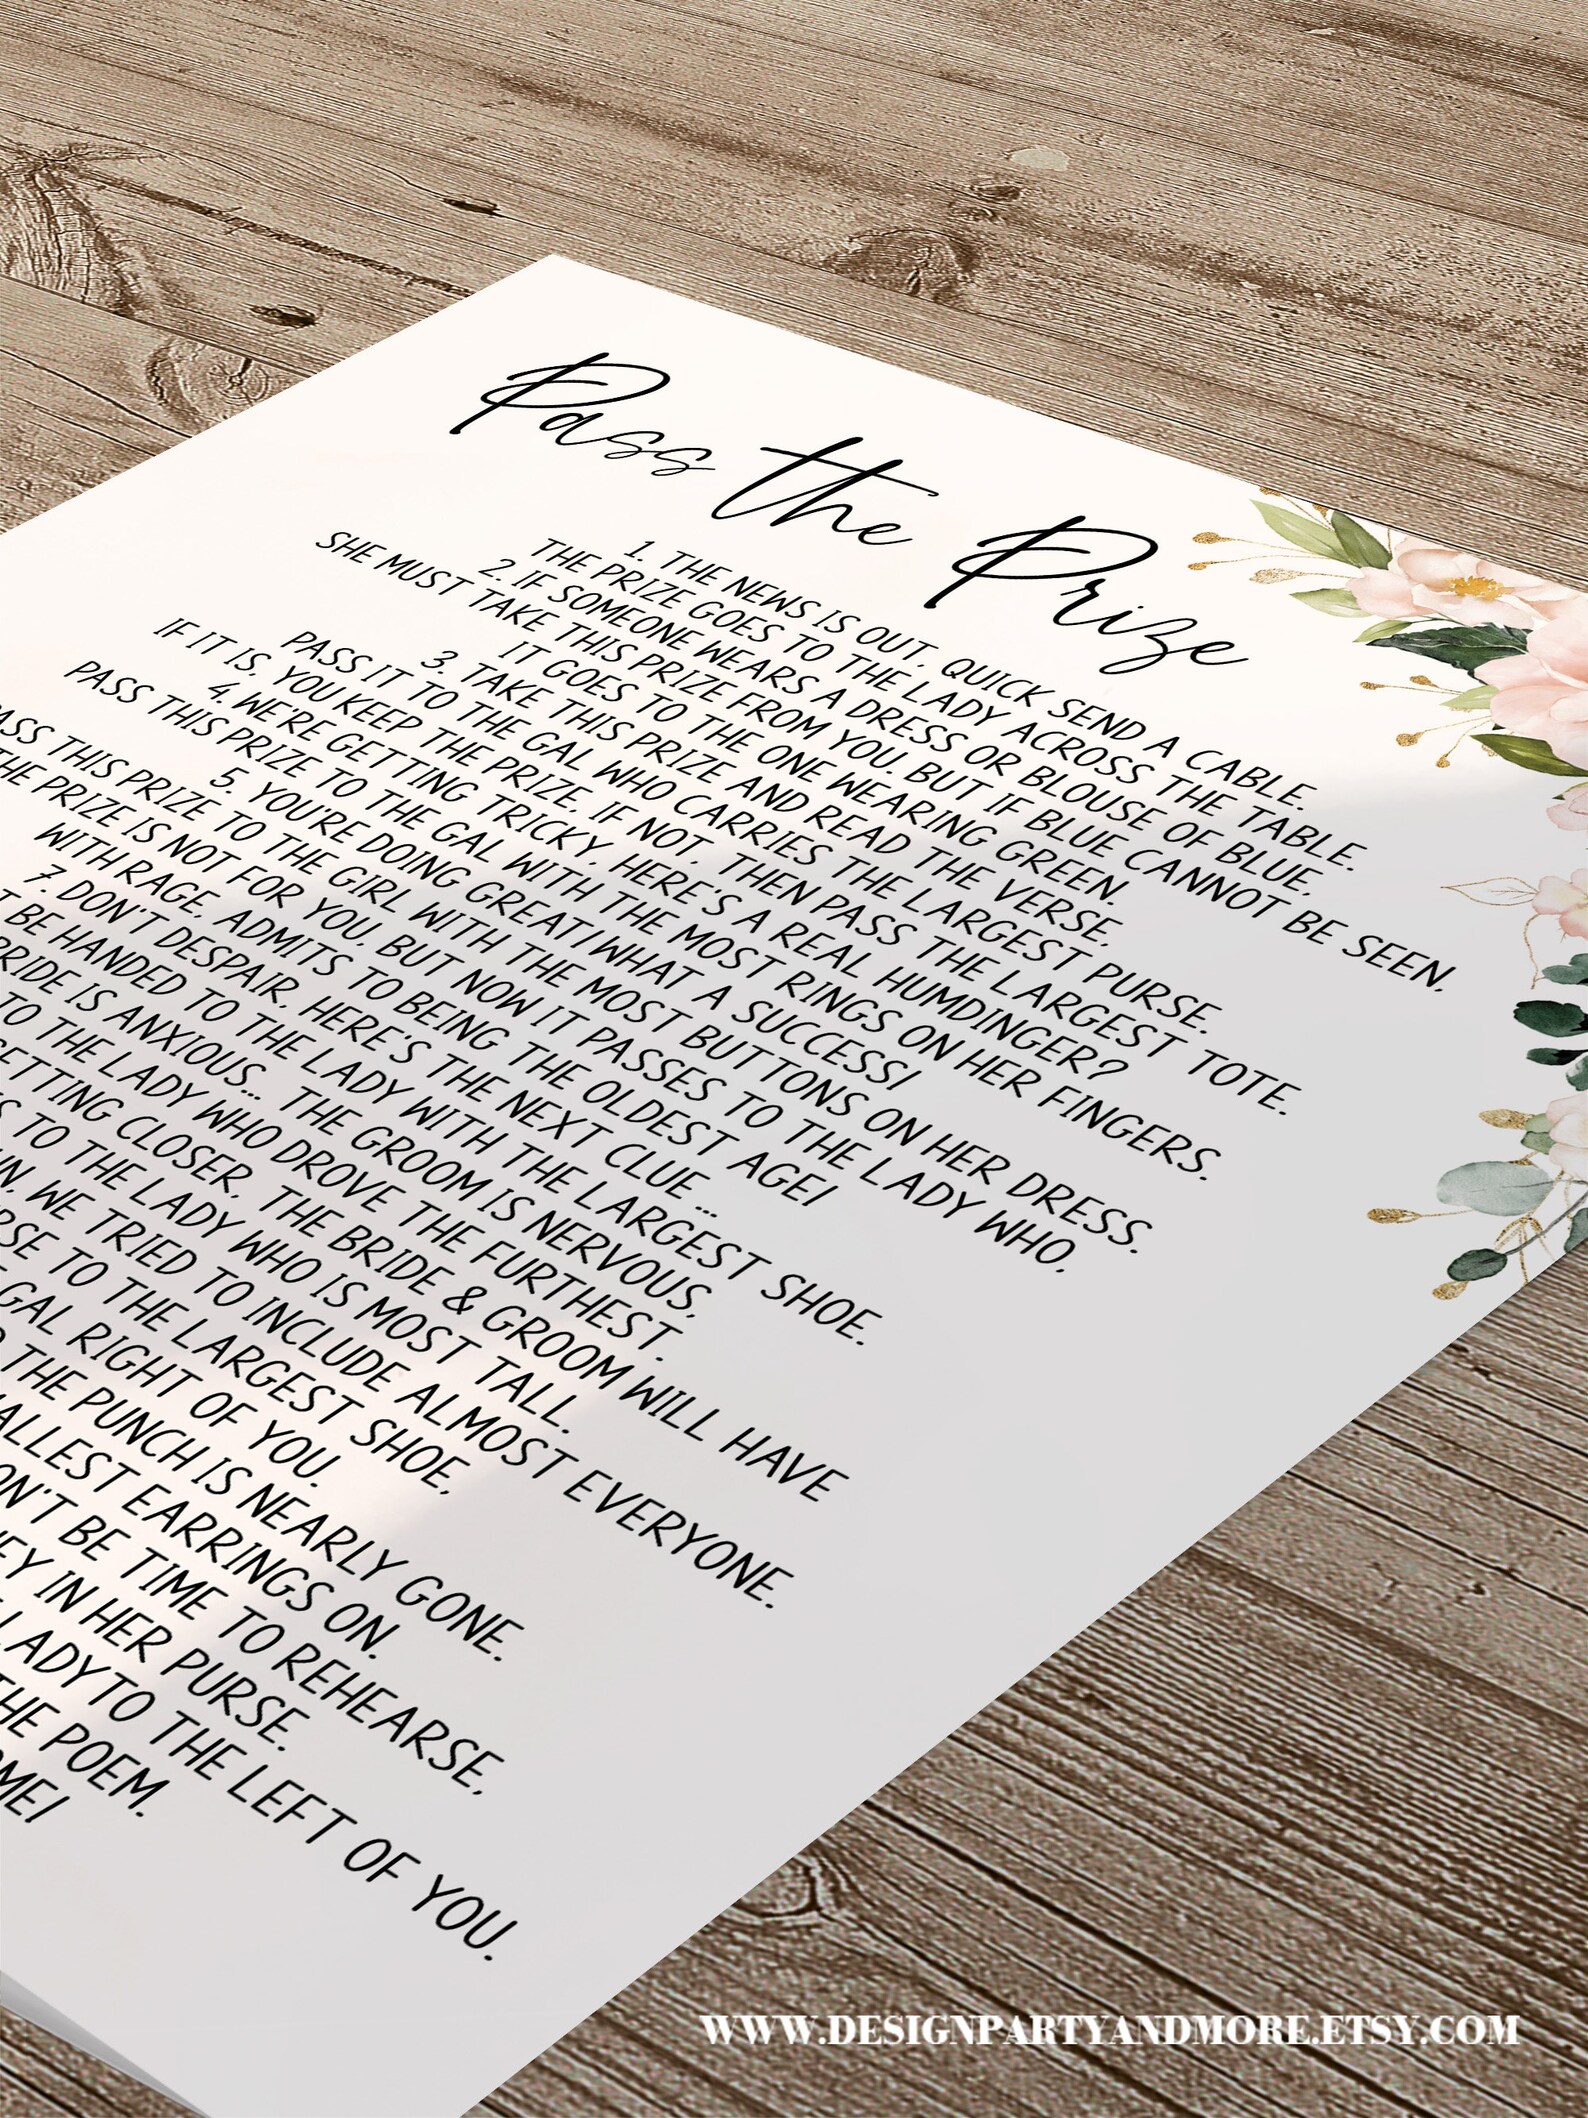 Pass the Prize
1. THE NEWS IS OUT, QUICK SEND A CABLE.
THE PRIZE GOES TO THE LADY ACROSS THE TABLE.
2. IF SOMEONE WEARS A DRESS OR BLOUSE OF BLUE,
SHE MUST TAKE THIS PRIZE FROM YOU. BUT IF BLUE CANNOT BE SEEN,
IT GOES TO THE ONE WEARING GREEN.
3. TAKE THIS PRIZE AND READ THE VERSE,
PASS IT TO THE GAL WHO CARRIES THE LARGEST PURSE.
IF IT IS, YOU KEEP THE PRIZE, IF NOT, THEN PASS THE LARGEST TOTE.
4. WE'RE GETTING TRICKY, HERE'S A REAL HUMDINGER?
PASS THIS PRIZE TO THE GAL WITH THE MOST RINGS ON HER FINGERS.
5. YOU'RE DOING GREAT! WHAT A SUCCESS!
PASS THIS PRIZE TO THE GIRL WITH THE MOST BUTTONS ON HER DRESS.
THE PRIZE IS NOT FOR YOU, BUT NOW IT PASSES TO THE LADY WHO,
WITH RAGE, ADMITS TO BEING THE OLDEST AGE!
7. DON'T DESPAIR, HERE'S THE NEXT CLUE ...
BE HANDED TO THE LADY WITH THE LARGEST SHOE.
RIDE IS ANXIOUS... THE GROOM IS NERVOUS,
TO THE LADY WHO DROVE THE FURTHEST.
GETTING CLOSER, THE BRIDE & GROOM WILL HAVE
TO THE LADY WHO IS MOST TALL.
WE TRIED TO INCLUDE ALMOST EVERYONE.
RSE TO THE LARGEST SHOE,
GAL RIGHT OF YOU.
THE PUNCH IS NEARLY GONE.
ALLEST EARRINGS ON.
ON'T BE TIME TO REHEARSE,
EY IN HER PURSE.
LADY TO THE LEFT OF YOU.
HE POEM.
OME!
WWW.DESIGNPARTYANDMORE.ETSY.COM